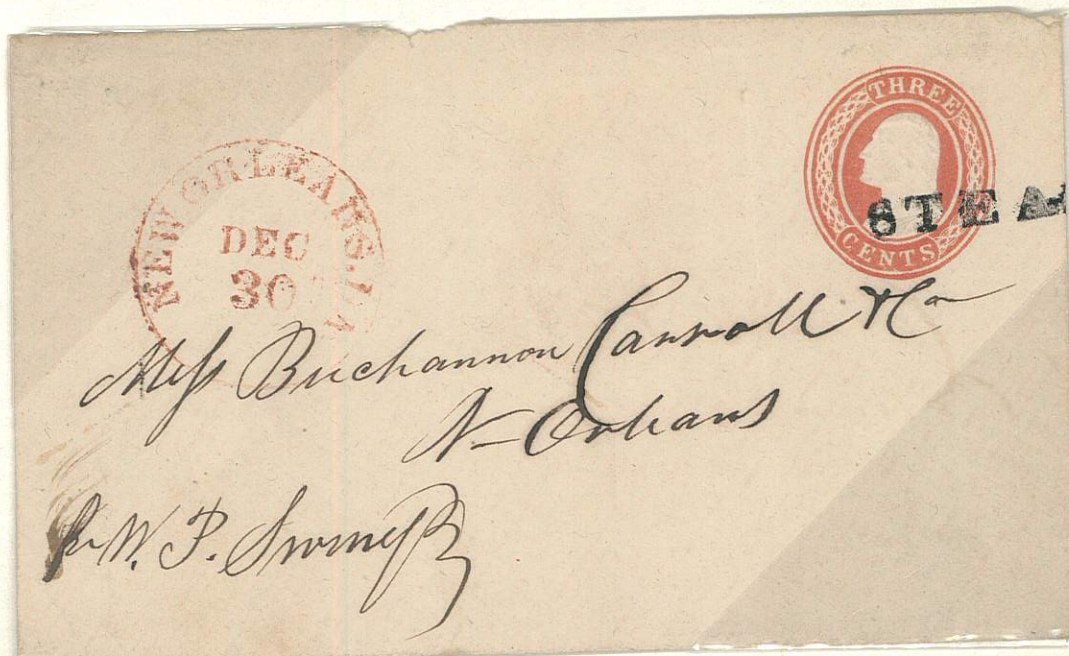 THREE
CENTS
STEA
NEW ORLEANS. LA
DEC
30
Mess Buchannon Carroll & Co
N- Orleans
W. P.